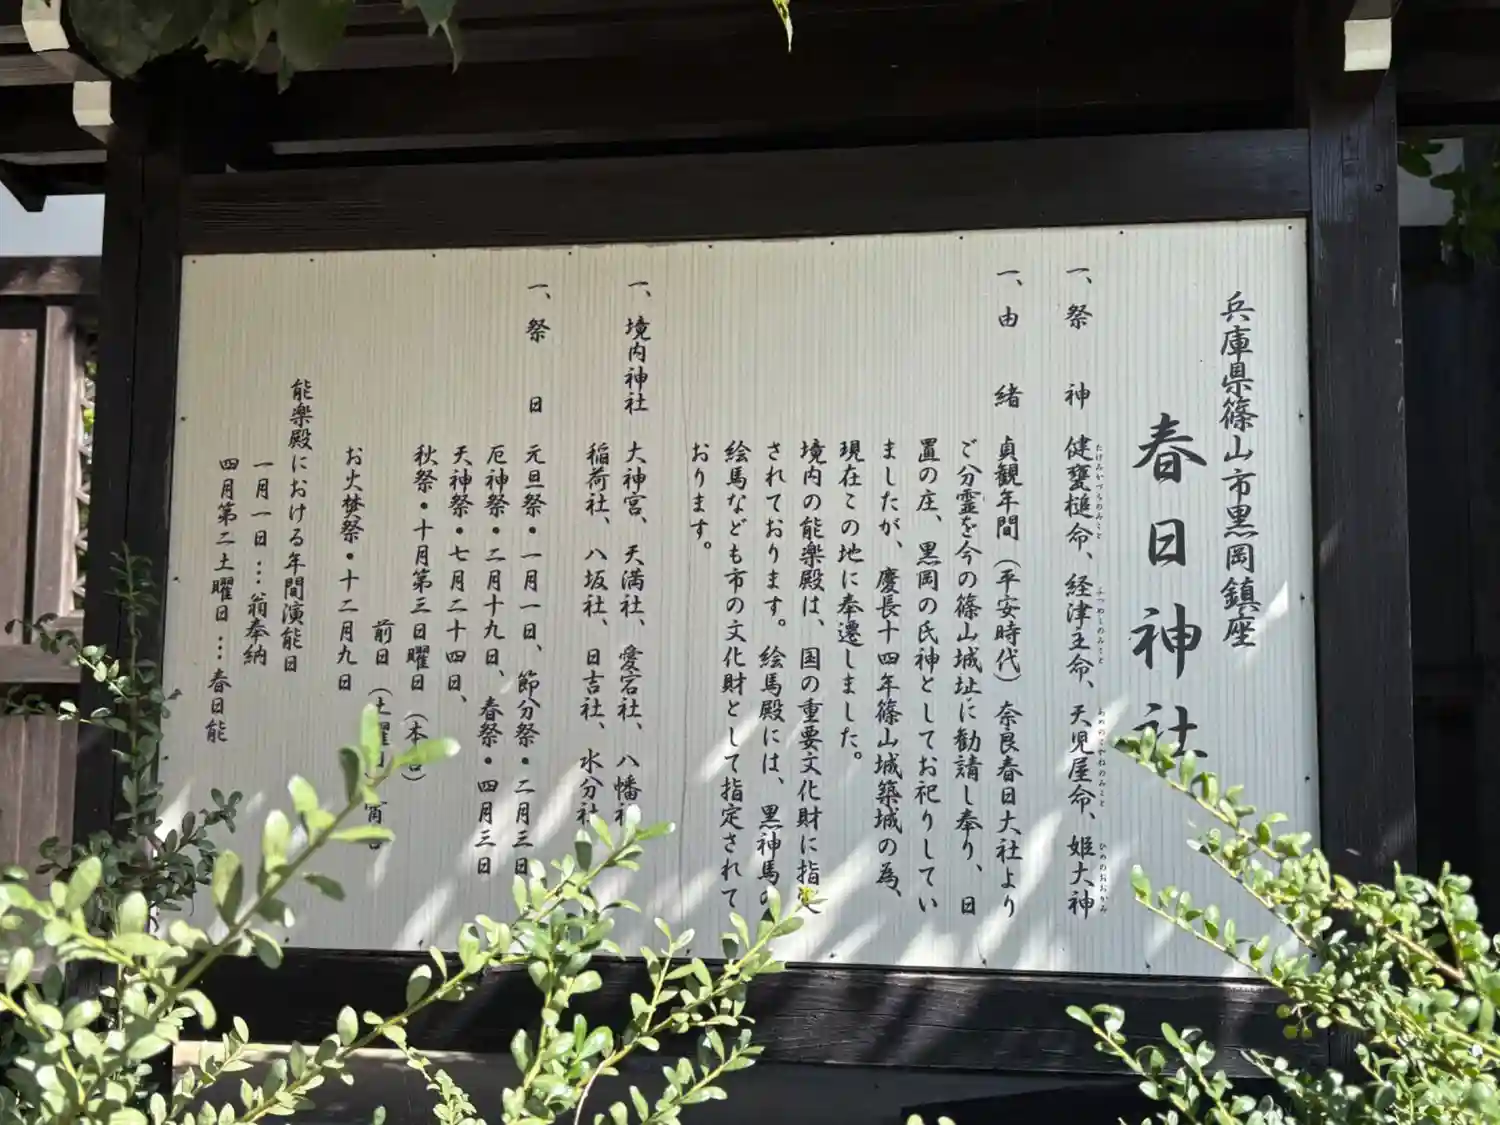 兵庫県篠山市黒岡鎮座
春日神社
一、祭神 健甕槌命、経津主命、天児屋命、姫大神
たけみかづちのみこと ふつぬしのみこと あめのこやねのみこと ひめのおおかみ
一、由緒 貞観年間(平安時代)奈良春日大社より
ご分霊を今の篠山城址に勧請し奉り、日
置の庄、黒岡の氏神としてお祀りしてい
ましたが、慶長十四年篠山城築城の為、
現在この地に奉遷しました。
境内の能楽殿は、国の重要文化財に指定
されております。絵馬殿には、黒神馬の
絵馬なども市の文化財として指定されて
おります。
一、境内神社 大神宮、天満社、愛宕社、八幡社
稲荷社、八坂社、日吉社、水分社
一、祭日 元旦祭・一月一日、節分祭・二月三日
厄神祭・二月十九日、春祭・四月三日
天神祭・七月二十四日、
秋祭・十月第三日曜日(本宮)
前日(土曜日)宵宮
お火焚祭・十二月九日
能楽殿における年間演能日
一月一日…翁奉納
四月第二土曜日…春日能